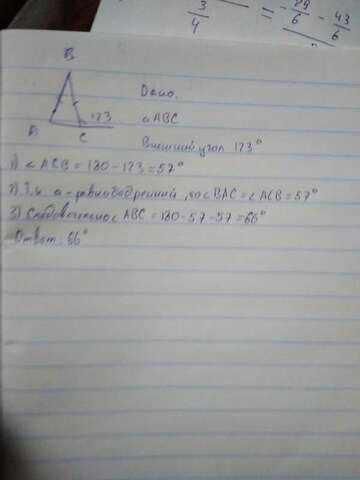 3
4
= -89/6 - 43/6
B
Дано.
123
△ABC
A
C
Внешний угол 123°
1) ∠ACB = 180-123=57°
2) Т.к △-равнобедренний, то ∠BAC=∠ACB=57°
3) Следовательно ∠ABC=180-57-57=66°
Ответ: 66°